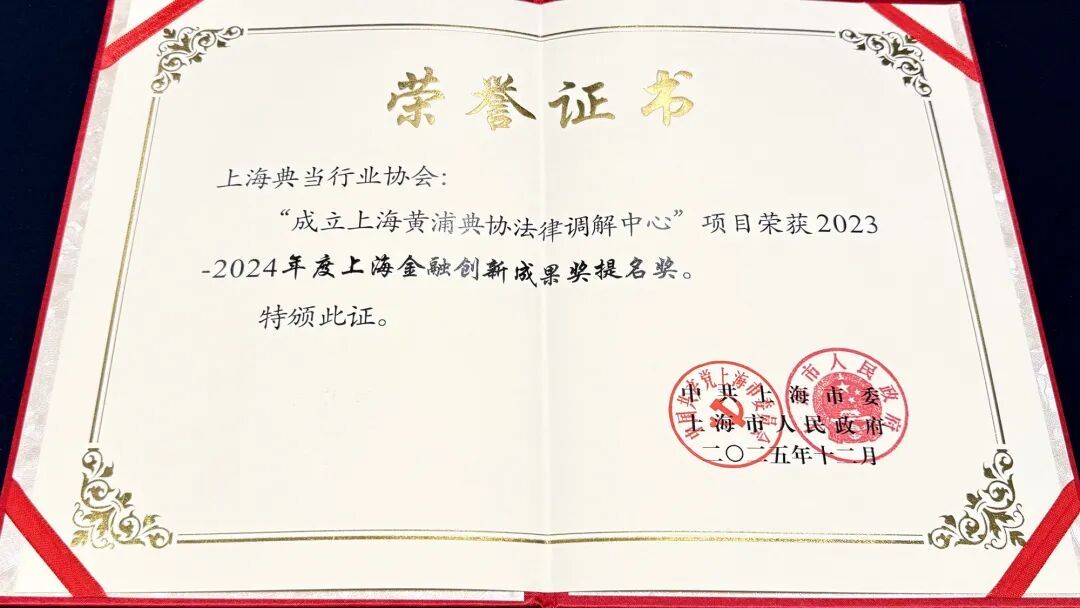 荣誉证书
上海典当行业协会：
“成立上海黄浦典协法律调解中心”项目荣获2023
-2024年度上海金融创新成果奖提名奖。
特颁此证。
中国共产党上海市委员会
市人民政府
中共上海市委
上海市人民政府
二〇二五年十二月